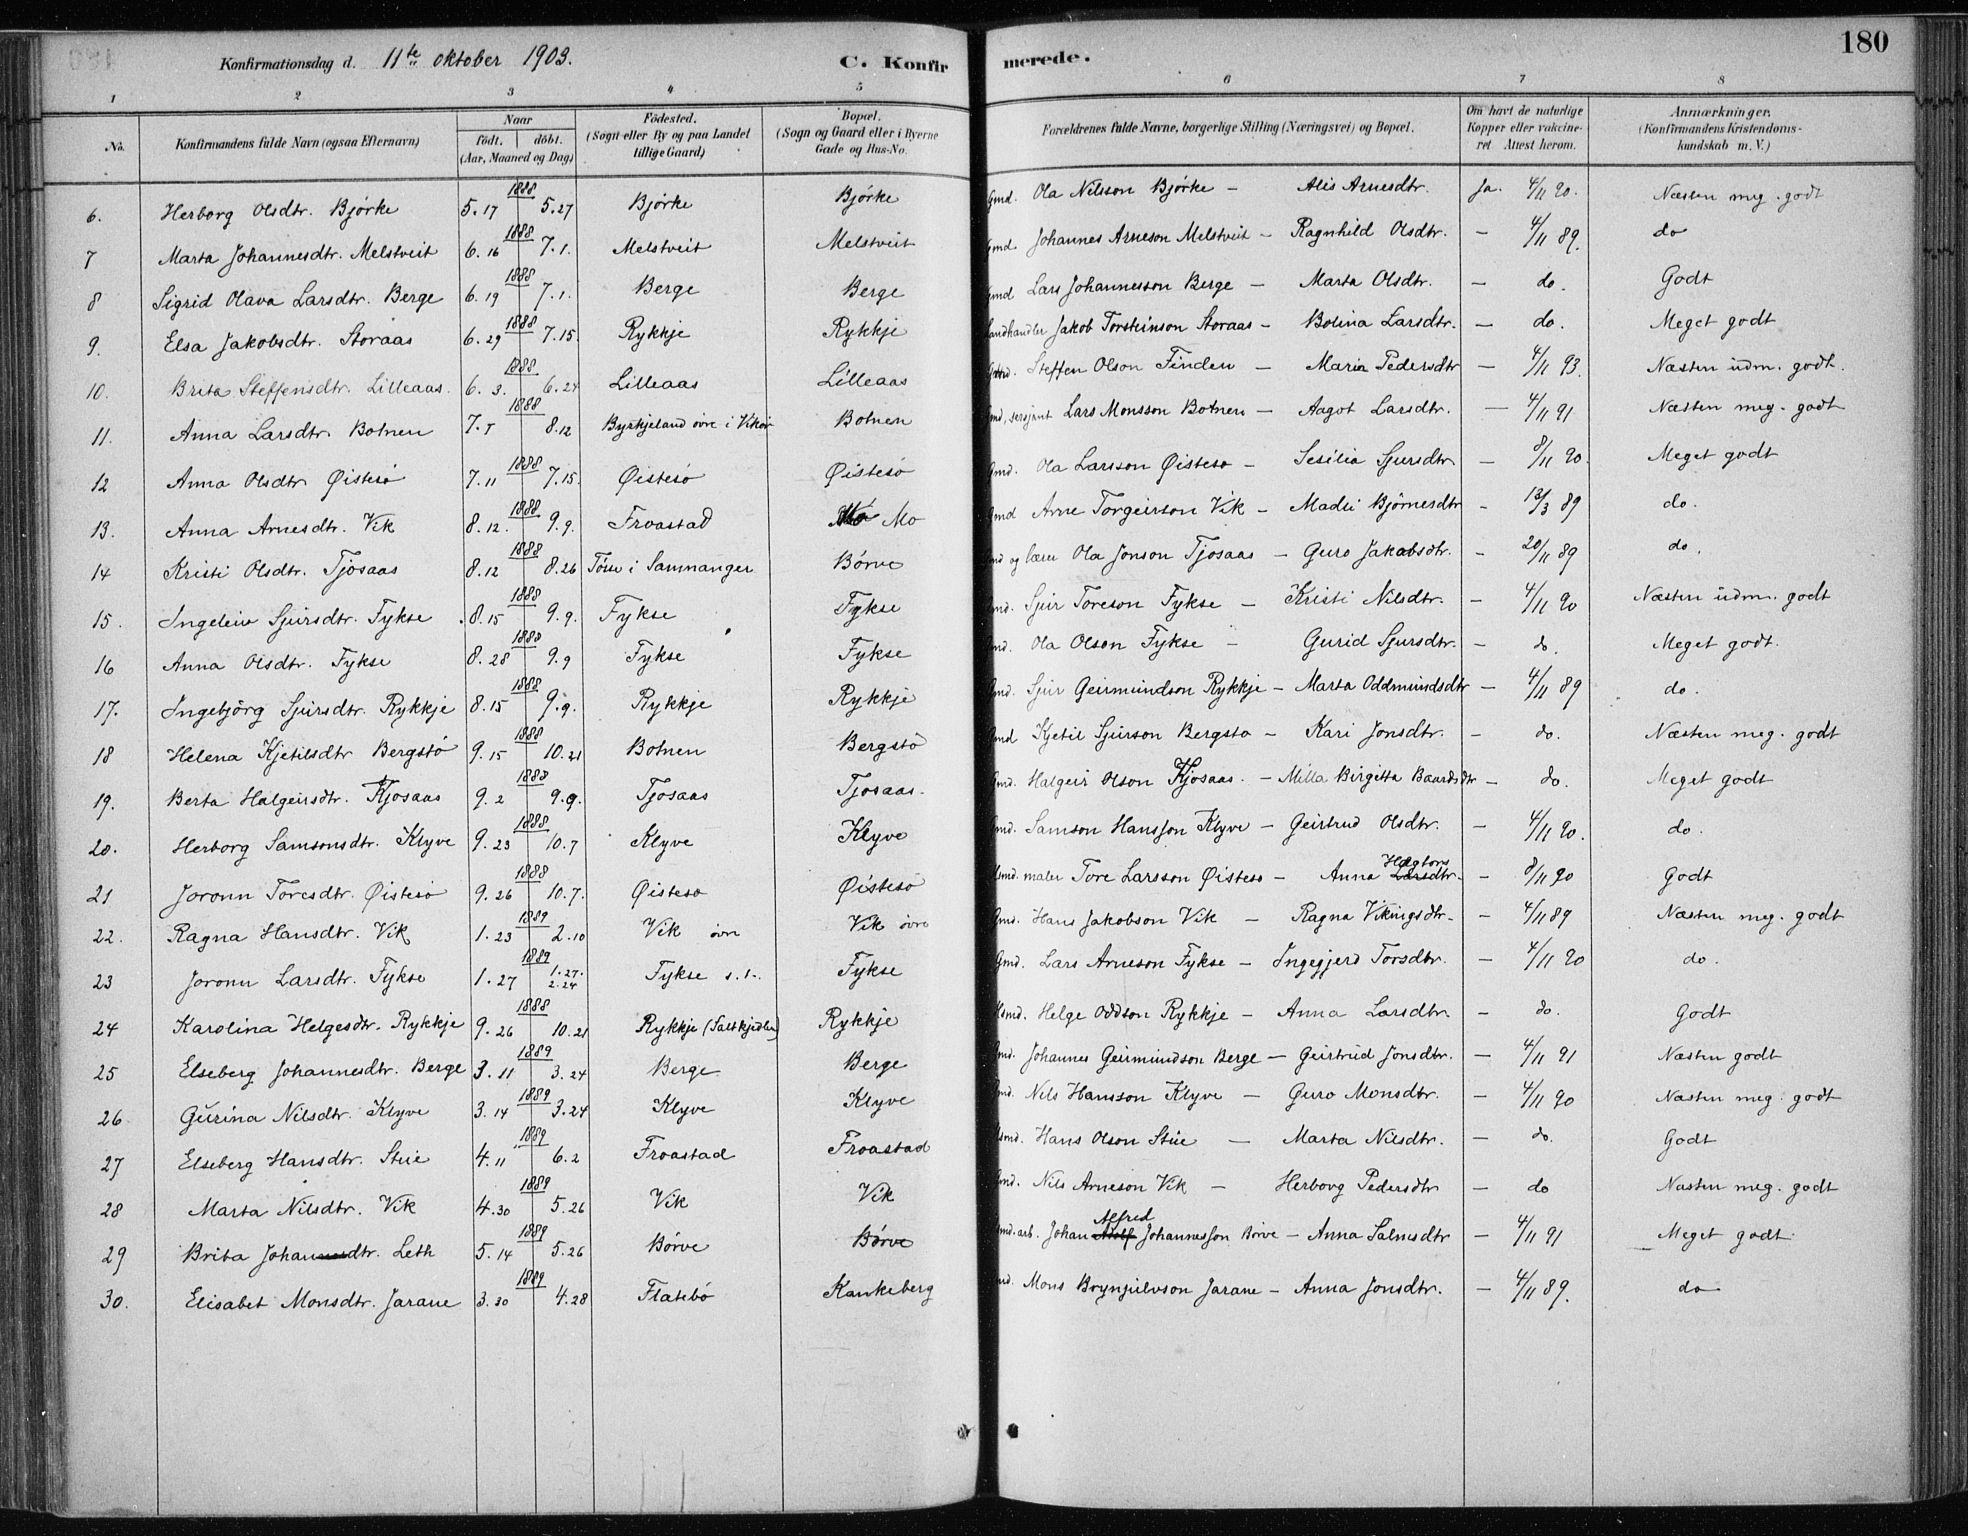 Konfirmationsdag d. 11te oktober 1903. C. Konfirmerede. 180
1 2 3 4 5 6 7 8
No. Konfirmandens fulde Navn (ogsaa Efternavn) Naar födt. döbt. (Aar, Maaned og Dag) Födested. (Sogn eller By og paa Landet tillige Gaard) Bopæl. (Sogn og Gaard eller i Byerne Gade og Hus-No. Forældrenes fulde Navne, borgerlige Stilling (Næringsvei) og Bopæl. Om havt de naturlige Kopper eller vakcineret Attest herom. Anmærkninger. (Konfirmandens Kristendomskundskab m. V.)
6. Herborg Olsdtr. Bjørke 1888 5.17 5.27 Bjørke Bjørke Gmd. Ola Nilsson Bjørke – Alis Arnesdtr. Ja. 4/11 90. Næsten meg. godt
7 Marta Johannesdtr. Melstveit 1888 6.16 7.1. Melstveit Melstveit Gmd. Johannes Arneson Melstveit – Ragnhild Olsdtr. – 4/11 89. do
8 Sigrid Olava Larsdtr. Berge 1888 6.19 7.1. Berge Berge Gmd Lars Johannesson Berge – Marta Olsdtr. – do. Godt
9. Elsa Jakobsdtr. Storaas 1888 6.29 7.15. Rykkje Rykkje Landhandler Jakob Torsteinson Storaas – Botina Larsdtr. – do. Meget godt
10. Brita Steffensdtr. Lilleaas. 1888 6.3 6.24 Lilleaas Lilleaas Gmd. Steffen Olson Finden – Maria Pedersdtr – 4/11 93. Næsten udm. godt.
11. Anna Larsdtr. Botnen 1888 7.5 8.12 Byrkjeland övre i Vikør Botnen Gmd, sersjant Lars Monsson Botnen – Aagot Larsdtr. – 4/11 91 Næsten meg. godt
12 Anna Olsdtr Øistesö 1888 7.11 7.15. Øistesö Øistesö Gmd. Ola Larsson Øisteso – Sesilia Sjursdtr – 8/11 90. Meget godt
13. Anna Arnesdtr. Vik 1888 8.12. 9.9. Froastad Mo Gmd Arne Torgeirson Vik – Madli Bjørnesdtr – 13/3 89 do.
14 Kristi Olsdtr. Tjosaas 1888 8.12 8.26 Tösse i Samnanger Børve Gmd og lærer Ola Jonson Tjosaas – Guro Jakobsdtr. – 20/11 89 do.
15. Ingeleiv Sjursdtr. Fykse 1888 8.15 9.9. Fykse Fykse Gmd. Sjur Toreson Fykse – Kristi Nilsdtr. – 4/11 90 Næsten udm. godt
16 Anna Olsdtr. Fykse 1888 8.28 9.9 Fykse Fykse Gmd. Ola Olson Fykse – Gurid Sjursdtr. – do. Meget godt.
17. Ingebjörg Sjursdtr. Rykkje 1888 8.15 9.9. Rykkje Rykkje Gmd. Sjur Geirmundson Rykkje – Marta Oddmundsdtr – 4/11 89 do.
18 Helena Kjetilsdtr Bergstö 1888 9.15 10.21 Botnen Bergstö Gmd Kjetil Sjurson Bergsto – Kari Jonsdtr. – do. Næsten meg. godt
19. Berta Halgeirsdtr. Tjosaas 1888 9.2 9.9. Tjosaas Tjosaas. Gmd. Halgeir Olson Tjosaas. – Milla Birgitta Baardsdtr – do. Meget godt
20. Herborg Samsonsdtr. Klyve 1888 9.23 10.7 Klyve Klyve Gmd. Samson Hansson Klyve – Geirtrud Olsdtr. – 4/11 90. do.
21 Joronn Toresdtr. Øistesö 1888 9.26 10.7. Øisteso Øistesö Hsmd. maler Tore Larsson Øisteso – Anna Larsdtr. – 8/11 90 Godt
22. Ragna Hansdtr. Vik 1889 1.23 2.10 Vik övre Vik övre Gmd. Hans Jakobson Vik – Ragna Vikingsdtr. – 4/11 89 Næsten meg. godt
23 Joronn Larsdtr. Fykse 1889 1.27 1.27. 2.24 Fykse Fykse Gmd. Lars Arneson Fykse – Ingegjerd Torsdtr. – 4/11 90 do.
24 Karolina Helgesdtr. Rykkje 1888 9.26 10.21 Rykkje (Saltkjedler) Rykkje Hsmd. Helge Oddson Rykkje – Anna Larsdtr. – do. Godt
25 Elseberg Johannesdtr. Berge 1889 3.11 3.24 Berge Berge Gmd. Johannes Geirmundson Berge – Geirtrud Jonsdtr. – 4/11 91 Næsten godt
26 Gurina Nilsdtr. Klyve 1889 3.14 3.24 Klyve Klyve Gmd. Nils Hansson Klyve – Guro Monsdtr. – 4/11 90 Næsten meg. godt
27 Elseberg Hansdtr. Stue 1889 4.11 6.2 Froastad Froastad Hsmd. Hans Olson Stue – Marta Nilsdtr. – do. Godt
28 Marta Nilsdtr. Vik 1889 4.30 5.26 Vik Vik Gmd. Nils Arneson Vik – Herborg Pedersdtr – do Næsten meg. godt
29 Brita Johannesdtr. Leth 1889 5.14 5.26 Børve Børve Hsmd. arb. Johan Adolf Alfred Johannesson Børve – Anna Salmesdtr – 4/11 91 Meget godt
30. Elisabet Monsdtr. Jarane 1889 3.30 4.28 Flatebö Kankeberg Gmd. Mons Brynjulvson Jarane – Anna Jonsdtr. – 4/11 89. do